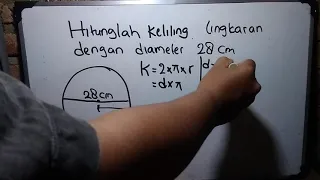 Hitunglah keliling lingkaran
dengan diameter 28 cm
K = 2 x π x r
= d x π
d =
28 cm